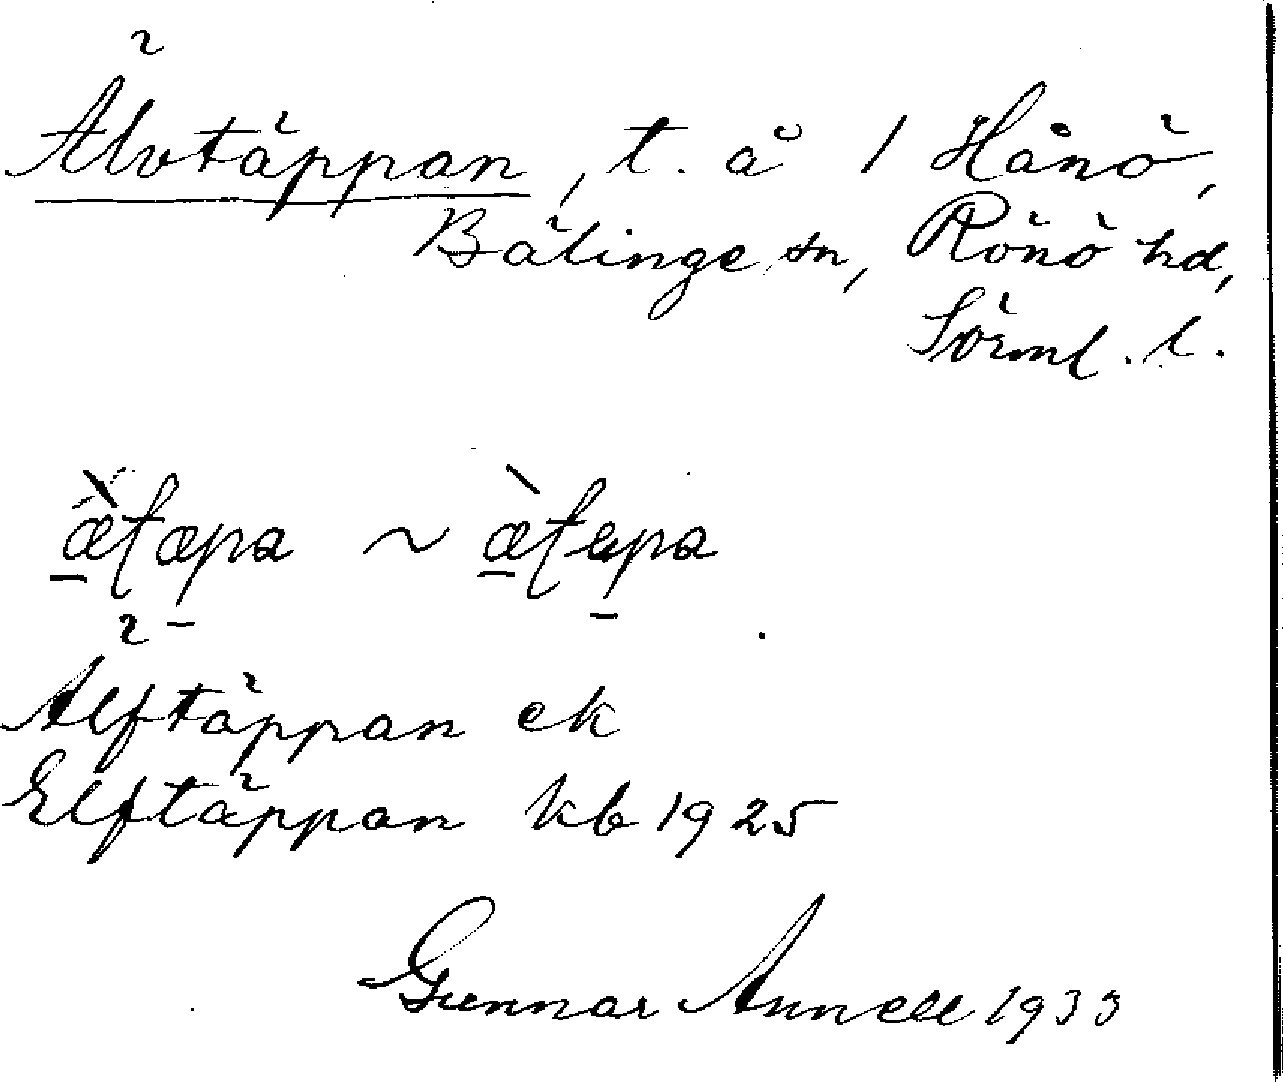 Älvtäppan, t. å 1 Hånö,
Bälinge sn, Rönö hd,
Sörml. l.
æ̀fæpa ~ æ̀fepa
Älftäppan ek
Elftäppan kb 1925
Gunnar Annell 1933